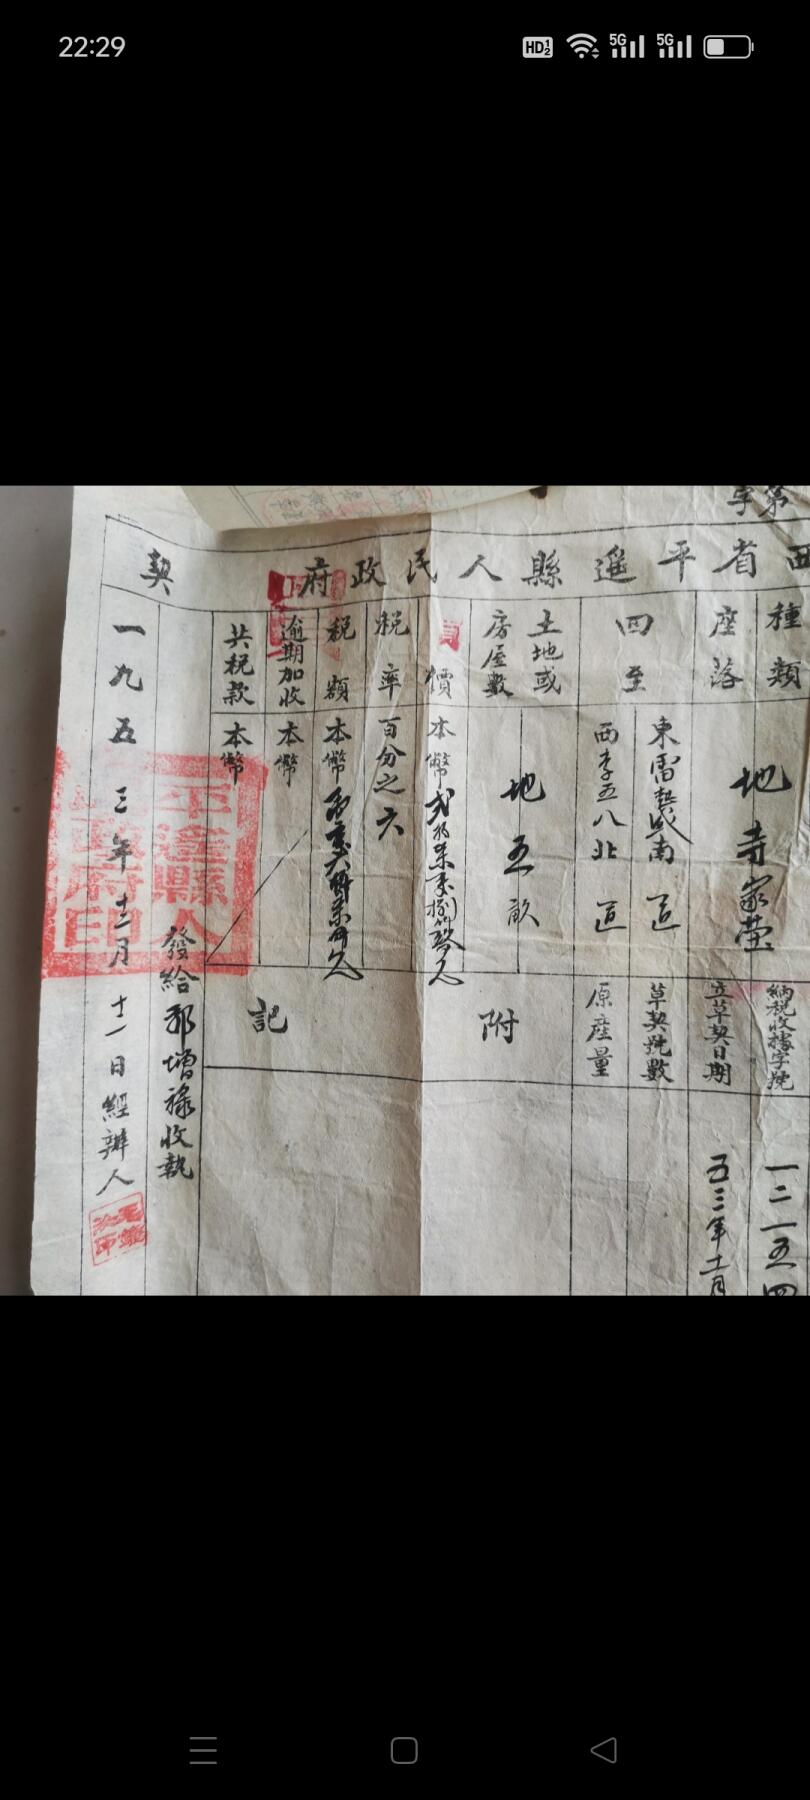 22:29
HD 1 2
5G
5G
第
字
西省平遥縣人民政府
契
種類
地
座落
寺家莊
四至
東雷
南道
西李五八北道
土地或
房屋數
地五畝
買價
本幣
税率
百分之六
税額
本幣
逾期加收
本幣
共税款
本幣
納税收據字號
一二一五四
立草契日期
五三年十一月
草契號數
原產量
附
記
發給郭增祿收執
一九五三年十二月十一日經辦人
平遥縣人
政府印